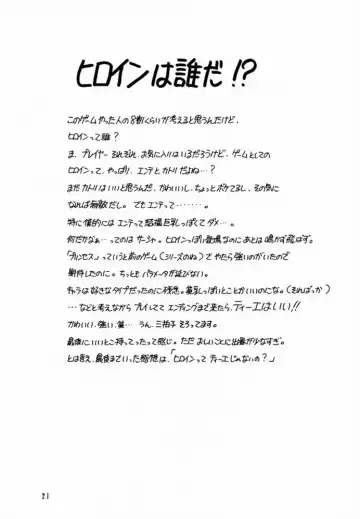 ヒロインは誰だ!?
このゲームやった人の8割くらいが考えると思うんだけど、
ヒロインって誰?
ま、プレイヤーそれぞれ、お気に入りはいるだろうけど、ゲームとしての
ヒロインって、やっぱり、エンテとカトリだよね…?
まだカトリはいいと思うんだ、かわいいし、ちょっとボケてるし、その気に
なれば無敵だし。でもエンテって‥‥‥‥。
特に僕的にはエンテって結構巨乳っぽくてダメ…。
何だかなぁ…ってのはサーシャ。ヒロインっぽい登場なのにあとは鳴かず飛ばず。
「プリンセス」っていうと前のゲーム(シリーズのね)でやたら強いのがいたので
期待したのに。ちっともパラメータが延びない。
キャラは好きなタイプだったのに残念。貧乳っぽいとこがいいのにな。(そればっか)
…などと考えながらプレイしててエンディングまで来たら、ティーエはいい!!
かわいい、強い、貧… うん、三拍子そろってます。
最後にいいとこ持ってったって感じ。ただおしいことに出番が少なすぎ。
とは言え、最後までいった感想は、「ヒロインってティーエじゃないの?」
21